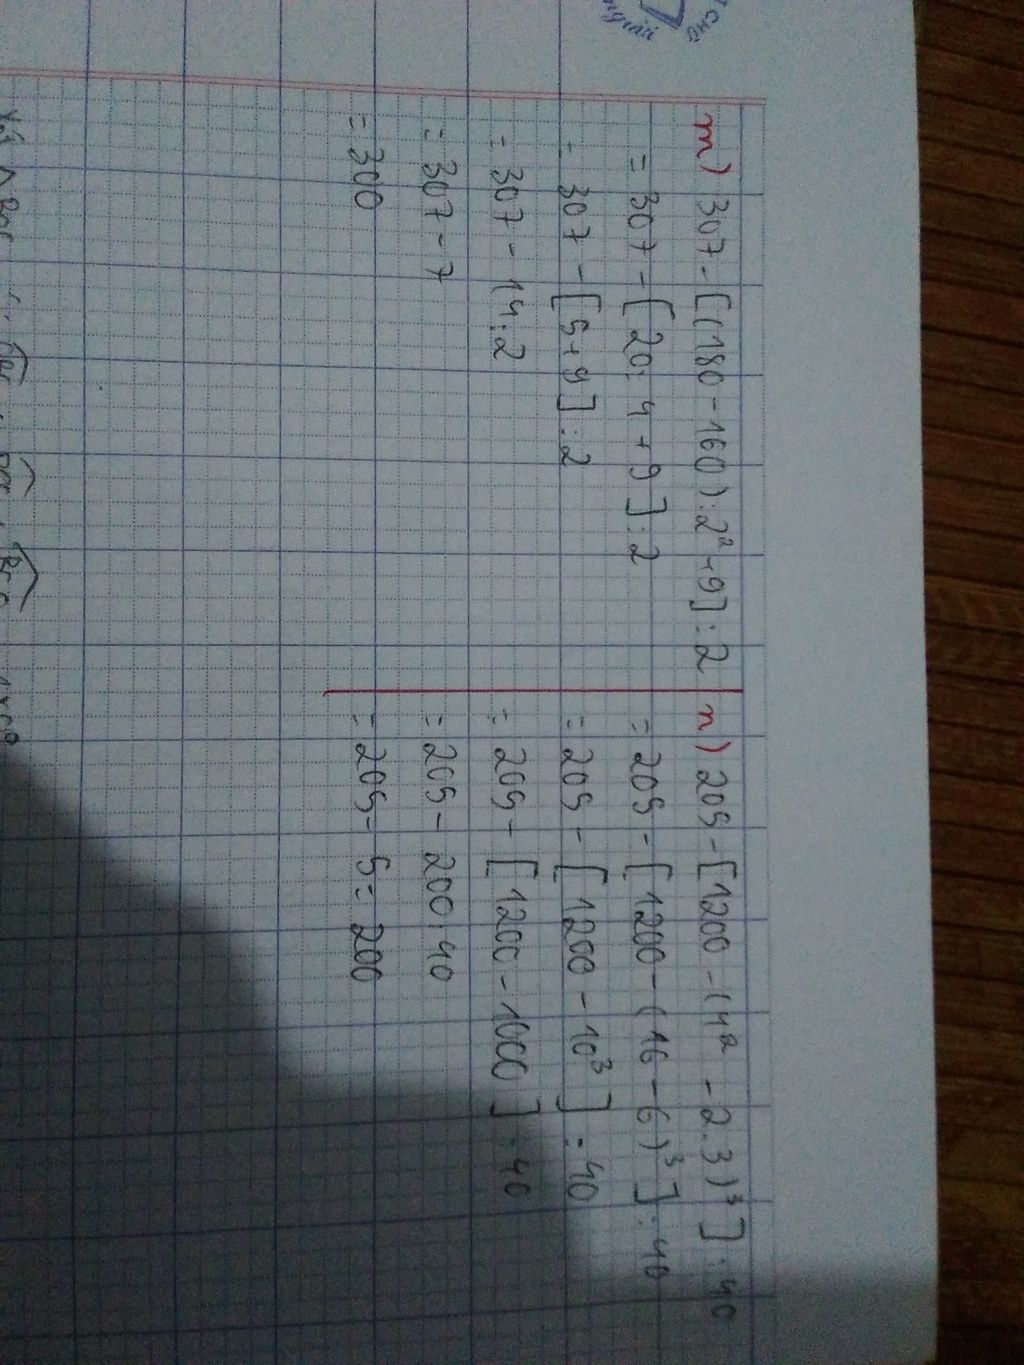 m) 307 - [(180 - 160) : 2² + 9] : 2
= 307 - [20 : 4 + 9] : 2
= 307 - [5 + 9] : 2
= 307 - 14 : 2
= 307 - 7
= 300
n) 205 - [1200 - (4² - 2.3)³] : 40
= 205 - [1200 - (16 - 6)³] : 40
= 205 - [1200 - 10³] : 40
= 205 - [1200 - 1000] : 40
= 205 - 200 : 40
= 205 - 5 = 200